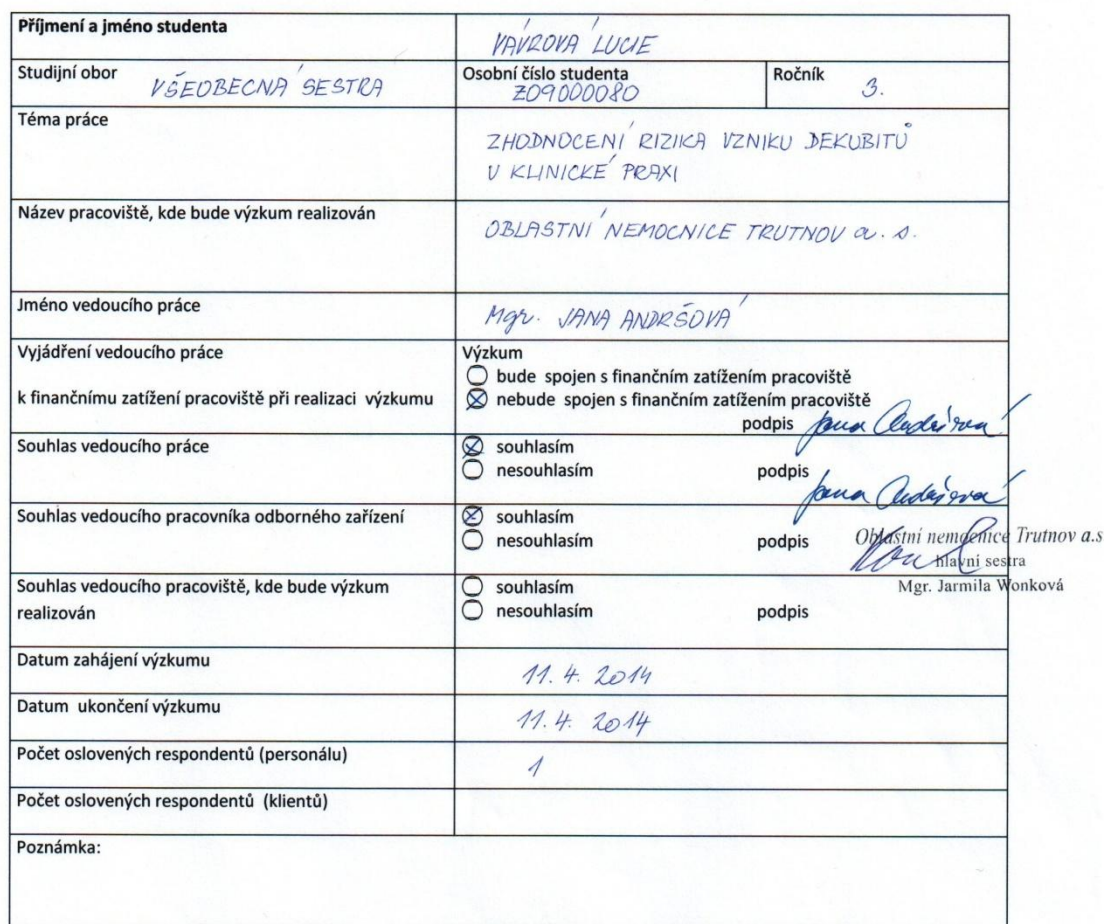 Příjmení a jméno studenta
VÁVROVÁ LUCIE
Studijní obor
VŠEOBECNÁ SESTRA
Osobní číslo studenta
Z09000080
Ročník
3.
Téma práce
ZHODNOCENÍ RIZIKA VZNIKU DEKUBITŮ
V KLINICKÉ PRAXI
Název pracoviště, kde bude výzkum realizován
OBLASTNÍ NEMOCNICE TRUTNOV a. s.
Jméno vedoucího práce
Mgr. JANA ANDRŠOVÁ
Vyjádření vedoucího práce
k finančnímu zatížení pracoviště při realizaci výzkumu
Výzkum
bude spojen s finančním zatížením pracoviště
nebude spojen s finančním zatížením pracoviště
podpis Jana Andršová
Souhlas vedoucího práce
souhlasím
nesouhlasím podpis
Jana Andršová
Souhlas vedoucího pracovníka odborného zařízení
souhlasím
nesouhlasím podpis
Oblastní nemocnice Trutnov a.s
hlavní sestra
Mgr. Jarmila Wonková
Souhlas vedoucího pracoviště, kde bude výzkum
realizován
souhlasím
nesouhlasím podpis
Datum zahájení výzkumu
11. 4. 2014
Datum ukončení výzkumu
11. 4. 2014
Počet oslovených respondentů (personálu)
1
Počet oslovených respondentů (klientů)
Poznámka: